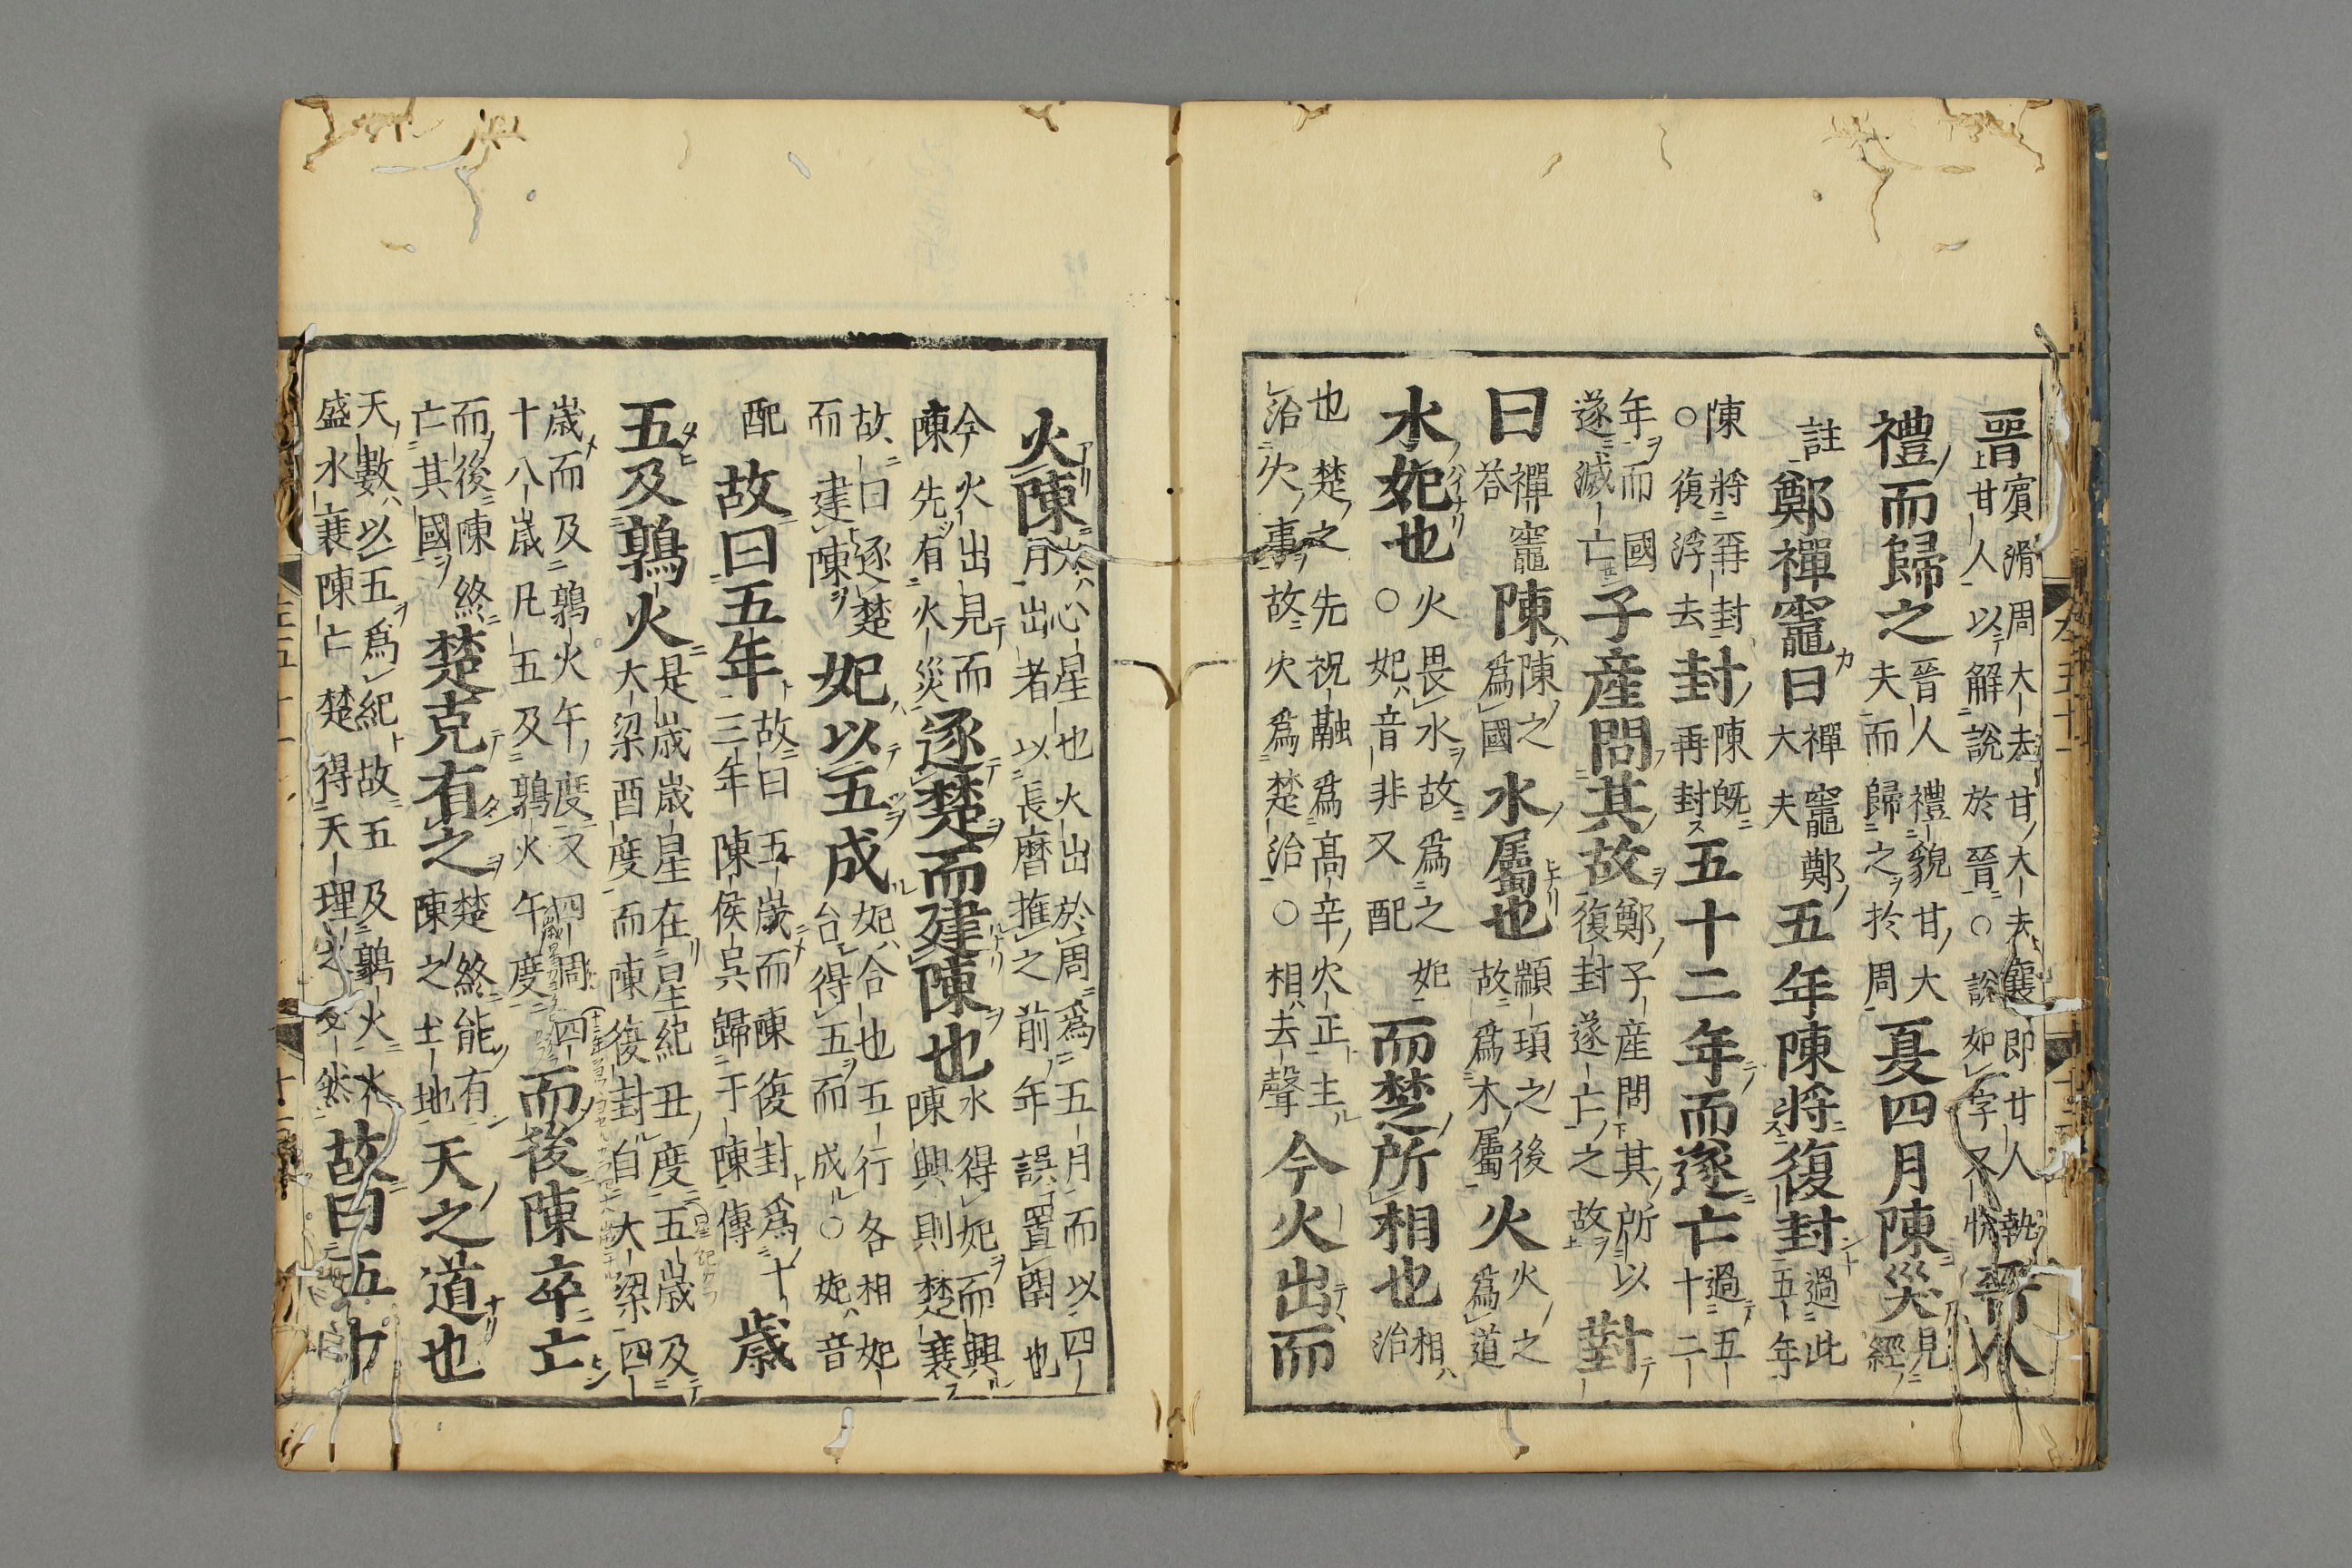 晉賓滑周大夫甘大夫襄即甘人執晉人
上甘人以解說於晉○說如字又
禮而歸之晉人禮貌甘大夫而歸之於周夏四月陳災見經
註鄭禆竈曰禆竈鄭大夫五年陳將復封過此五年
陳將再封○復浮去封陳既再封五十二年而遂亡過五十二
年而國遂滅亡子產問其故鄭子產問其所以復封遂亡之故對
曰禆竈荅陳陳之為國水屬也顓頊之後故為水屬火火之為道
水妃也火畏水故為之妃○妃音非又配而楚所相也相治
也楚之先祝融為高辛火正主治火事故火為楚治○相去聲今火出而
火陳火心星也火出於周為五月而以四月出者以長曆推之前年誤置閏也
今火出見而陳先有火災逐楚而建陳也水得妃而興陳興則楚襄
故曰逐楚而建陳妃以五成妃合也五行各相妃合得五而成○妃音
配故曰五年故曰五歲而陳復封為十三年陳侯吳歸于陳傳歲
五及鶉火是歲歲星在星紀丑度五歲及大梁酉度而陳復封自大梁四
歲而及鶉火午度又四周四十八歲凡五及鶉火午度而後陳卒亡
而後陳終亡其國楚克有之楚終能有陳之土地天之道也
天數以五為紀故五及鶉火火盛水襄陳亡楚得天理之然故曰五十